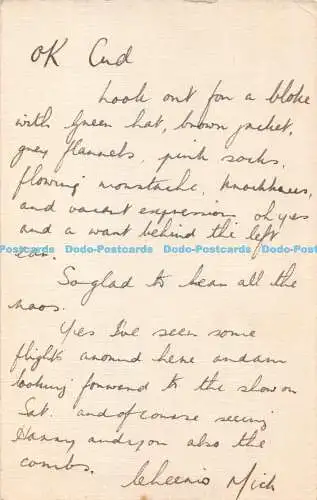 OK Cud
Look out for a bloke
with green hat, brown jacket,
grey flannels, pink socks,
flowing moustache, knockknees,
and vacant expression oh yes
and a want behind the left
ear.
So glad to hear all the
naos.
Yes I've seen some
flights around here and am
looking forward to the show on
Sat. and of course seeing
Harry and you also the
combs.
Cheerio Mich
Dodo-Postcards Dodo-Postcards Dodo-Postcards